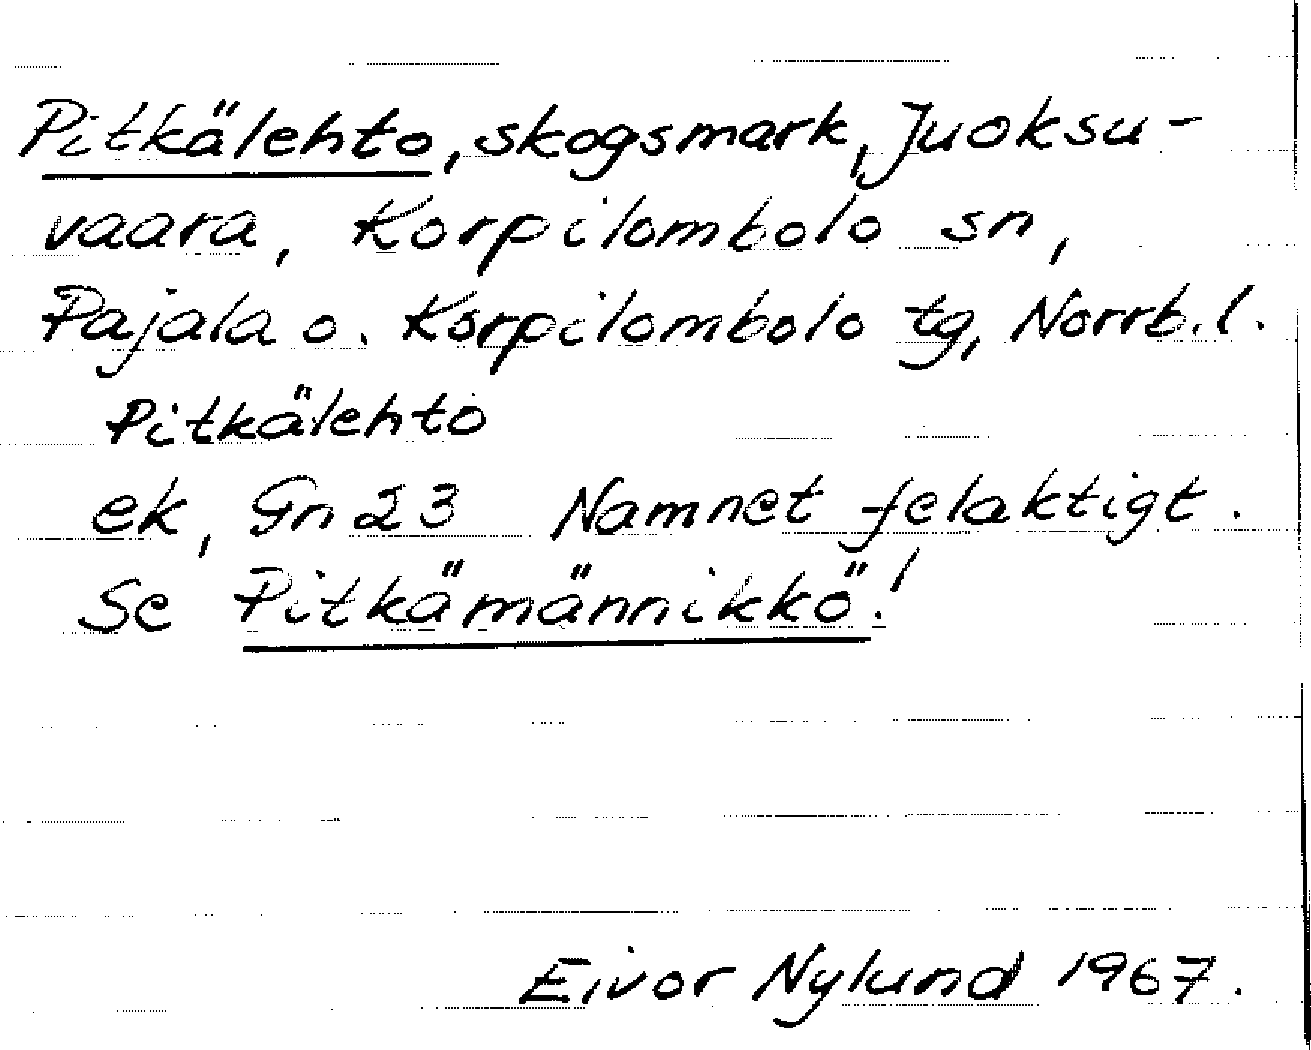 Pitkälehto, skogsmark, Juoksu-
vaara, Korpilombolo sn,
Pajala o. Korpilombolo tg, Norrb.l.
Pitkälehto
ek, Gn 23 Namnet felaktigt.
Se Pitkämännikkö!
Eivor Nylund 1967.